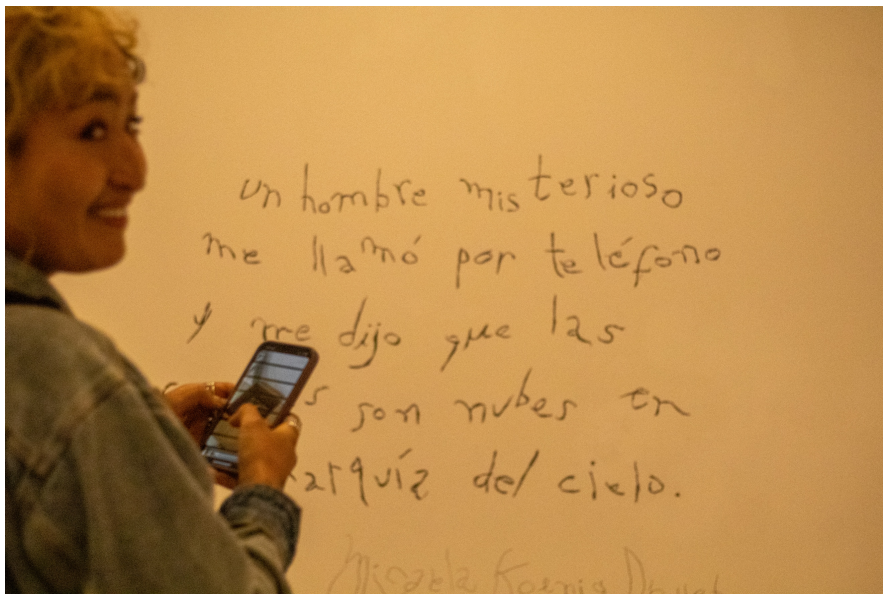 un hombre misterioso
me llamó por teléfono
y me dijo que las
son nubes en
del cielo.
Micaela Koenig